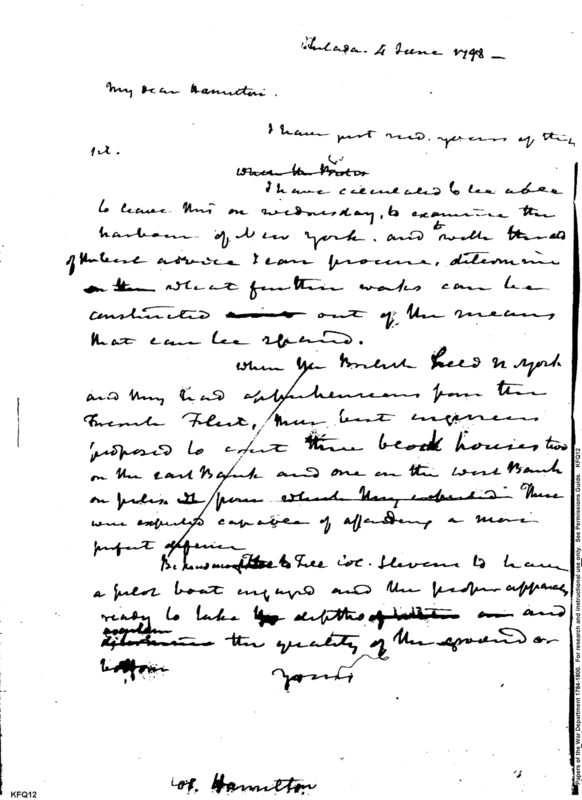 Philada. 4 June 1798 —
My dear Hamilton.
I have just recd. yours of the
1st.
When the British
I have calculated to be able
to leave this on wednesday, to examine the
harbour of New York. and to with the aid
of the best advice I can procure, determine
on the what further works can be
constructed out of the means
that can be spared.
When the British held N York
and they had apprehensions from the
French Fleet, their best engineers
proposed to erect three block houses two
on the east Bank and one on the west Bank
on piles from which they expected These
were expected capable of affording a more
perfect defence
Be so to Tell Col. Stevens to have
a pilot boat engaged and the proper apparatus
ready to take the depths of water and
ascertain
determine the quality of the ground or
bottom
Yours
Col. Hamilton
KFQ12
Papers of the War Department 1784-1800. For research and instructional use only. See Permissions Guide. KFQ12